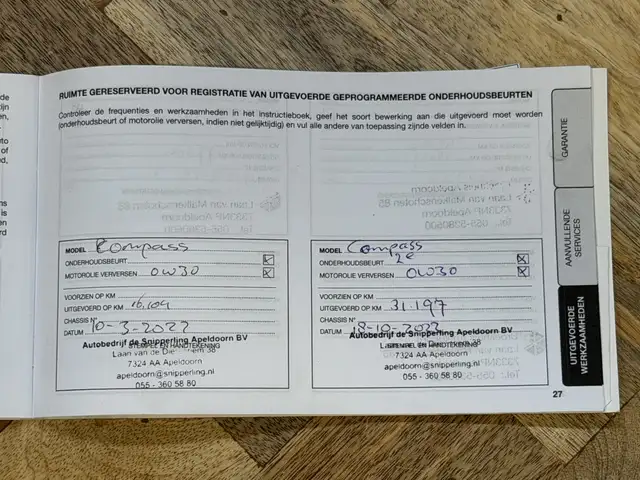 RUIMTE GERESERVEERD VOOR REGISTRATIE VAN UITGEVOERDE GEPROGRAMMEERDE ONDERHOUDSBEURTEN
Controleer de frequenties en werkzaamheden in het instructieboek, geef het soort bewerking aan die uitgevoerd moet worden
(onderhoudsbeurt of motorolie verversen, indien niet gelijktijdig) en vul alle andere van toepassing zijnde velden in.
MODEL Compass
ONDERHOUDSBEURT
MOTOROLIE VERVERSEN 0W30
VOORZIEN OP KM
UITGEVOERD OP KM 16.104
CHASSIS N°
DATUM 10-3-2022
Autobedrijf de Snipperling Apeldoorn BV
STEMPEL EN HANDTEKENING
Laan van de 38
7324 AA Apeldoorn
apeldoorn@snipperling.nl
055 - 360 58 80
MODEL Compass
ONDERHOUDSBEURT 2e
MOTOROLIE VERVERSEN 0W30
VOORZIEN OP KM
UITGEVOERD OP KM 31.197
CHASSIS N°
DATUM 18-10-2023
Autobedrijf de Snipperling Apeldoorn BV
STEMPEL EN HANDTEKENING
38
7324 AA Apeldoorn
apeldoorn@snipperling.nl
055 - 360 58 80
GARANTIE
AANVULLENDE
SERVICES
UITGEVOERDE
WERKZAAMHEDEN
27